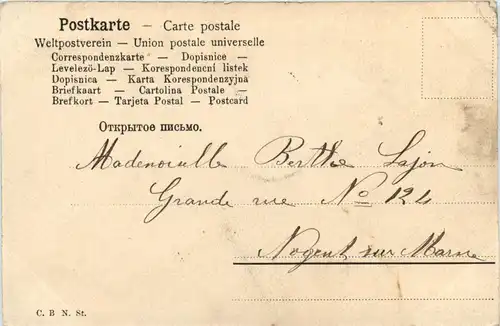 Postkarte — Carte postale
Weltpostverein — Union postale universelle
Correspondenzkarte — Dopisnice —
Levelező-Lap — Korespondencní listek
Dopisnica — Karta Korespondenzyjna
Briefkaart — Cartolina Postale —
Brefkort — Tarjeta Postal — Postcard
Открытое письмо.
Mademoiselle Berthe Lajon
Grande rue No 124
Nogent sur Marne
C. B N. St.